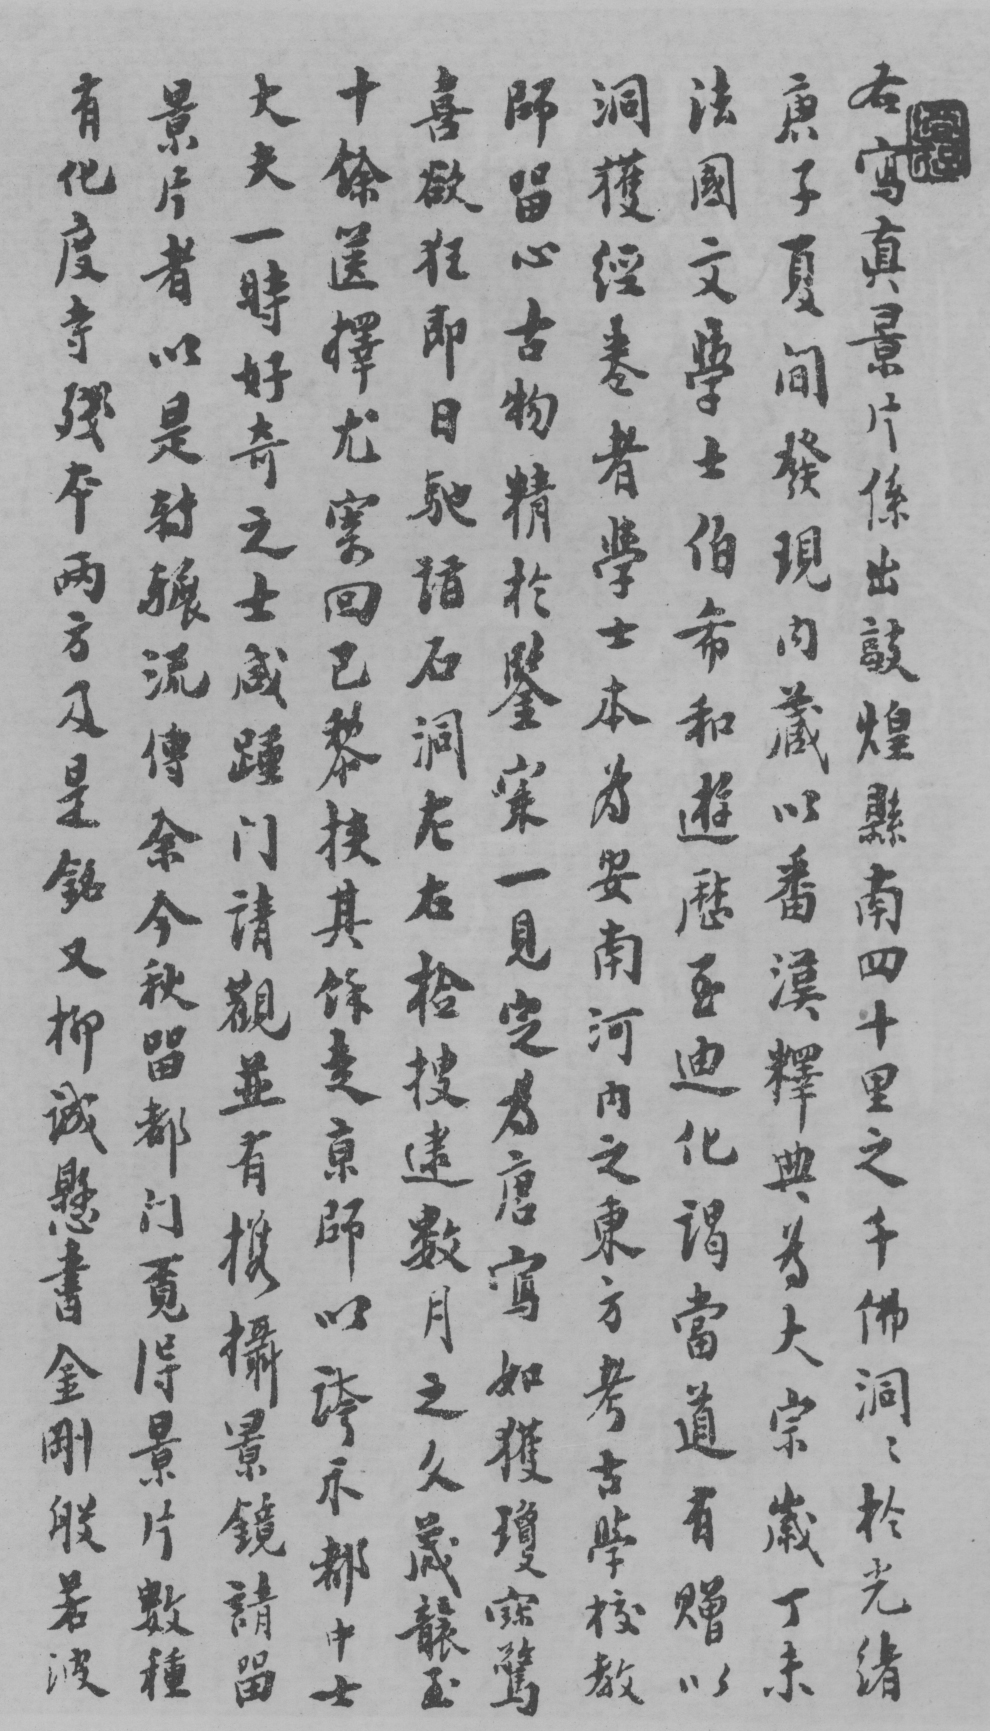 右寫真景片係出敦煌縣南四十里之千佛洞〻於光緒
庚子夏間發現内藏以番漢釋典為大宗歲丁未
法國文學士伯希和遊歷至迪化謁當道有贈以
洞獲經卷者學士本為安南河内之東方考古學校教
師留心古物精於鑒家一見定為唐寫如獲瓊寀驚
喜欲狂即日馳詣石洞左右拾搜逮數月之久歲襲至
十餘篋擇尤寀回巴黎挾其餘走京師以誇示都中士
大夫一時好奇之士咸踵门請觀並有携攝景鏡請留
景片者以是轉輾流傳余今秋留都门覓得景片數種
有化度寺殘本兩方及是銘又柳誠懸書金剛般若波